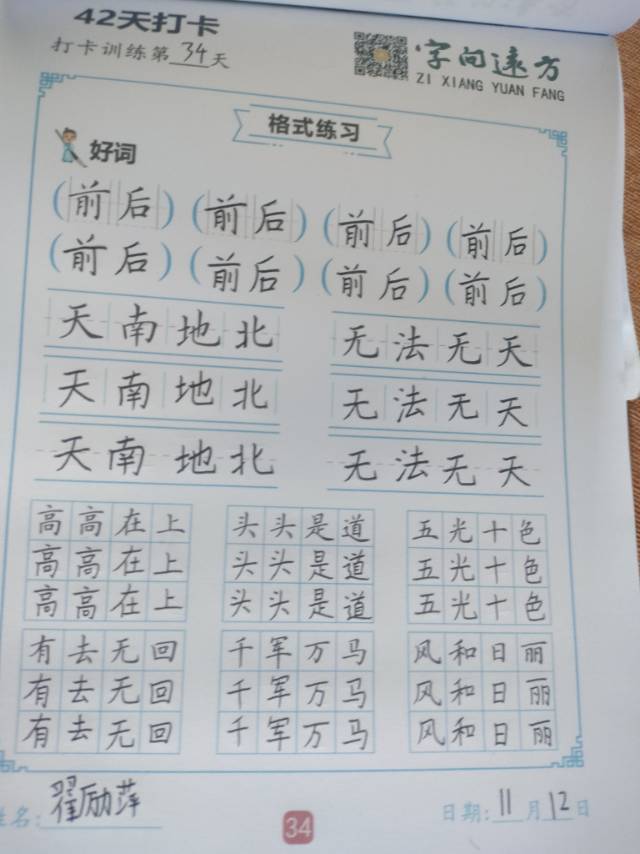 42天打卡
打卡训练第34天
字向远方
ZI XIANG YUAN FANG
格式练习
好词
(前后) (前后) (前后) (前后)
(前后) (前后) (前后) (前后)
天南地北 无法无天
天南地北 无法无天
天南地北 无法无天
高高在上 头头是道 五光十色
高高在上 头头是道 五光十色
高高在上 头头是道 五光十色
有去无回 千军万马 风和日丽
有去无回 千军万马 风和日丽
有去无回 千军万马 风和日丽
姓名:翟励萍
34
日期:11月12日